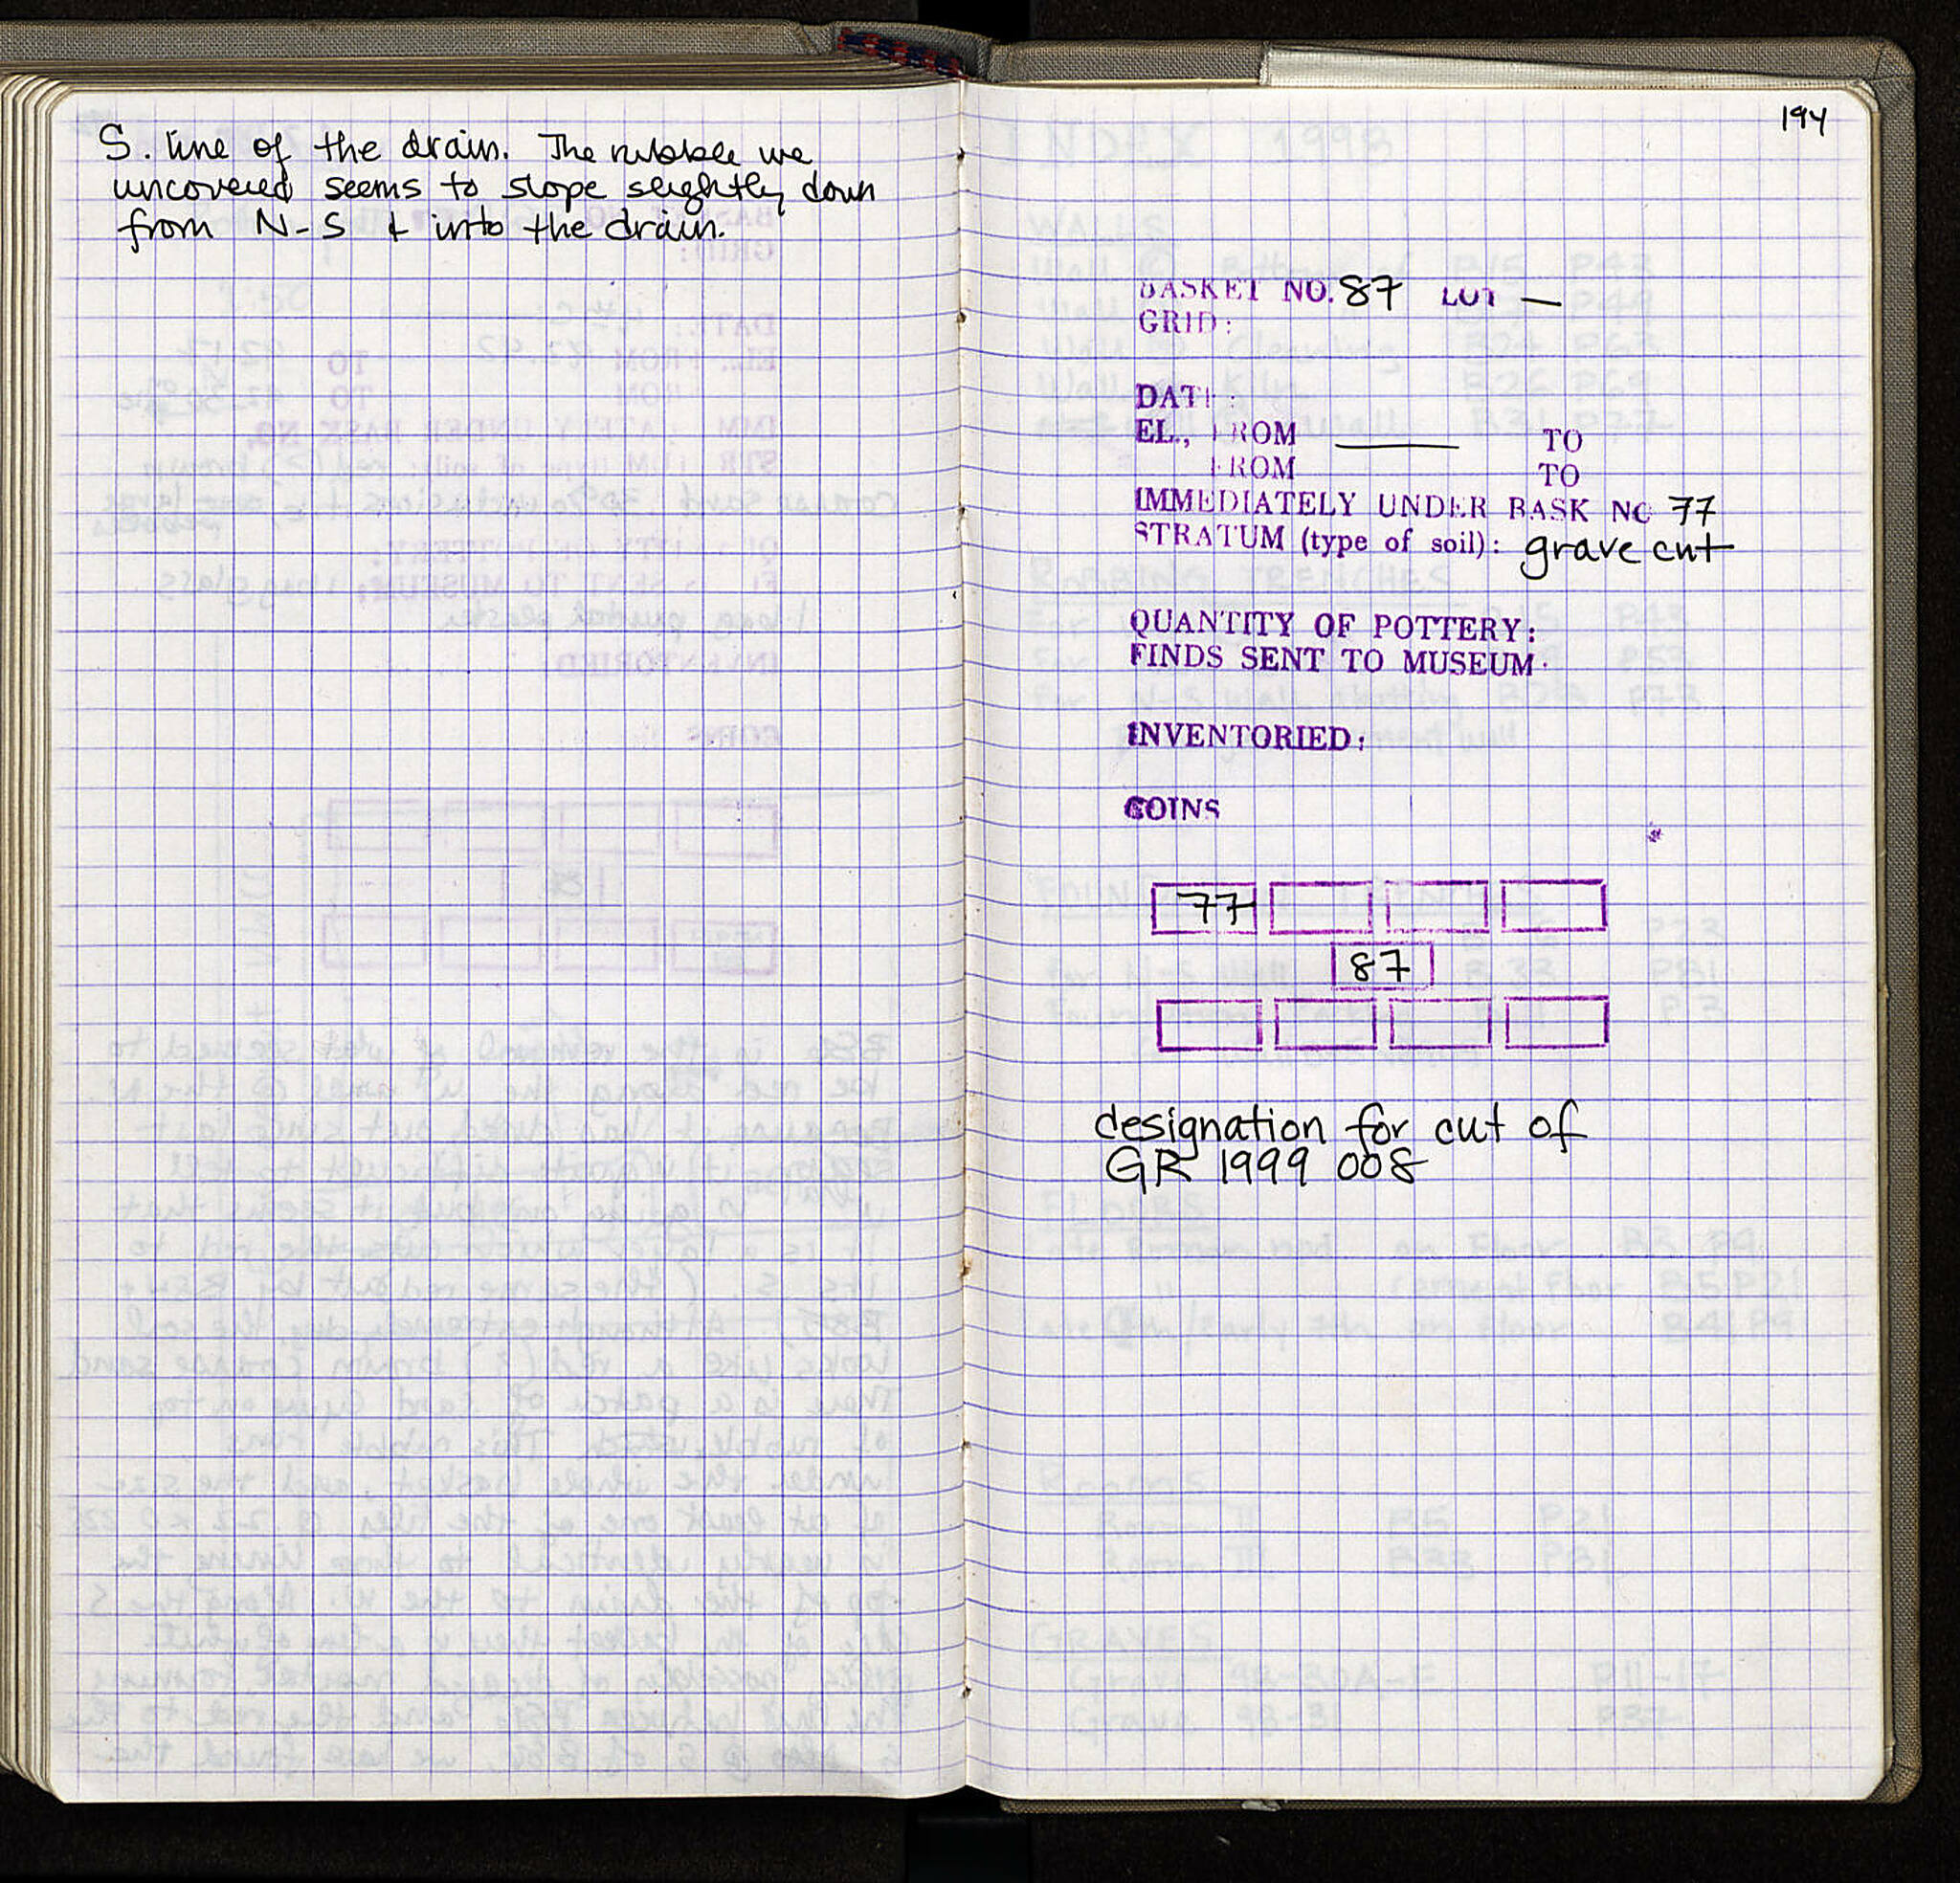 S. line of the drain. The rubble we
uncovered seems to slope slightly down
from N-S & into the drain.
194
BASKET NO. 87 LOT —
GRID:
DATE:
EL., FROM ——— TO
FROM TO
IMMEDIATELY UNDER BASK NO 77
STRATUM (type of soil): grave cut
QUANTITY OF POTTERY:
FINDS SENT TO MUSEUM:
INVENTORIED:
COINS
77
87
designation for cut of
GR 1999 008